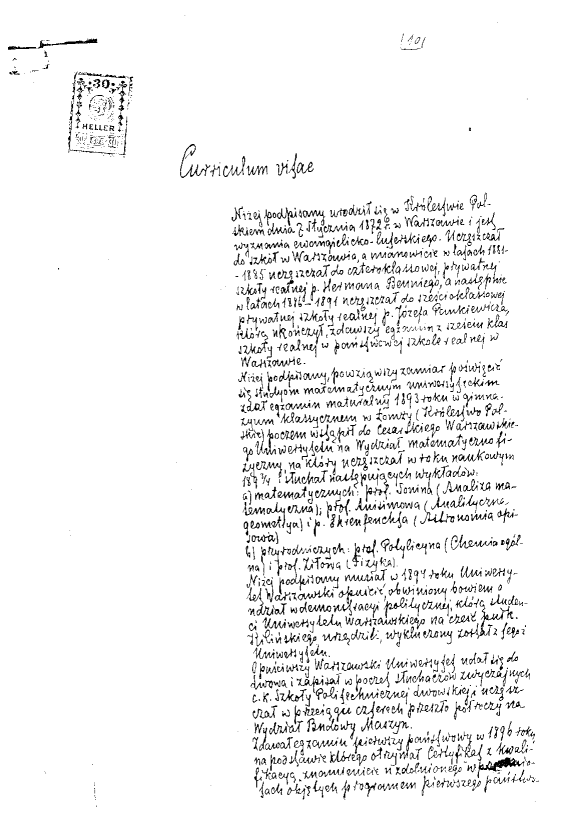 30
HELLER
Curriculum vitae
Niżej podpisany urodził się w Królestwie Pol-
skiem dnia 7 stycznia 1872 r. w Warszawie i jest
wyznania ewangielicko-luterskiego. Uczęszczał
do szkół w Warszawie, a mianowicie w latach 1881-
-1885 uczęszczał do czteroklassowej prywatnej
szkoły realnej p. Hermana Benniego, a następnie
w latach 1886-1891 uczęszczał do sześcioklassowej
prywatnej szkoły realnej p. Józefa Pankiewicza,
którą ukończył, zdawszy egzamin z sześciu klas
szkoły realnej w państwowej szkole realnej w
Warszawie.
Niżej podpisany, powziąwszy zamiar poświęcić
się studyom matematycznym uniwersyteckim
zdał egzamin maturalny 1893 roku w gimna-
zyum klassycznem w Łomży (Królestwo Pol-
skie) poczem wstąpił do Cesarskiego Warszawskie-
go Uniwersytetu na Wydział matematyczno fi-
zyczny na który uczęszczał w roku naukowym
189¾ i słuchał następujących wykładów:
a) matematycznych: prof. Sonina (Analiza ma-
tematyczna); prof. Anisimowa (Analityczna
geometrya) i p. Ehrenfenchta (Astronomia opi-
sowa)
b) przyrodniczych: prof. Potylicyna (Chemia ogól-
na) i prof. Ziłowa (Fizyka).
Niżej podpisany musiał w 1894 roku Uniwersy-
tet Warszawski opuścić, obwiniony bowiem o
udział w demonstracyi politycznej, którą studen-
ci Uniwersytetu Warszawskiego na cześć pułk.
Kilińskiego urządzili, wykluczony został z tego ż
Uniwersytetu.
Opuściwszy Warszawski Uniwersytet udał się do
Lwowa i zapisał w poczet słuchaczów zwyczajnych
c.k. Szkoły Politechnicznej Lwowskiej i uczęsz-
czał w przeciągu czterech przeszło półroczy na
Wydział Budowy Maszyn.
Zdawał egzamin pierwszy państwowy w 1896 roku
na podstawie którego otrzymał Certyfikat z kwali-
fikacyą znamienicie uzdolnionego w
tach objętych programem pierwszego państwo-